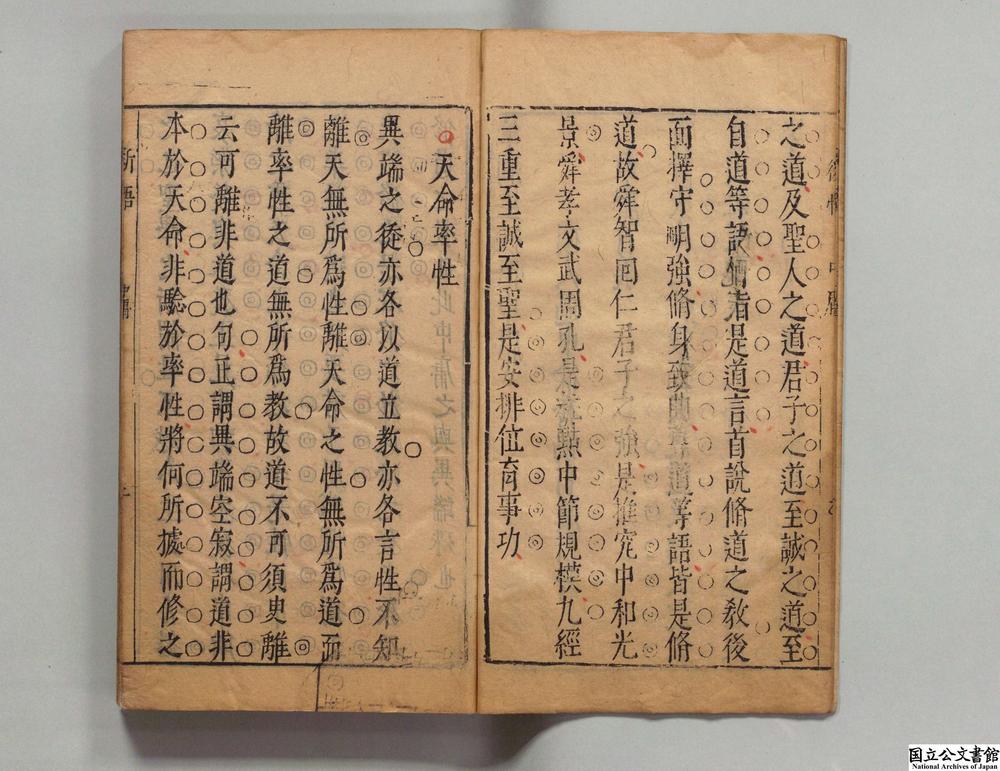 之道及聖人之道君子之道至誠之道至
自道等語俱是道言首說脩道之敎後
面擇守明強脩身致曲尊道等語皆是脩
道故舜智回仁君子之強是推究中和光
景舜孝文武周孔是並無中節規模九經
三重至誠至聖是安排位育事功
天命率性
異端之徒亦各以道立教亦各言性不知
離天無所爲性離天命之性無所爲道而
離率性之道無所爲教故道不可須臾離
云可離非道也句正謂異端空寂謂道非
本於天命非驗於率性將何所據而修之
新語
国立公文書館
National Archives of Japan